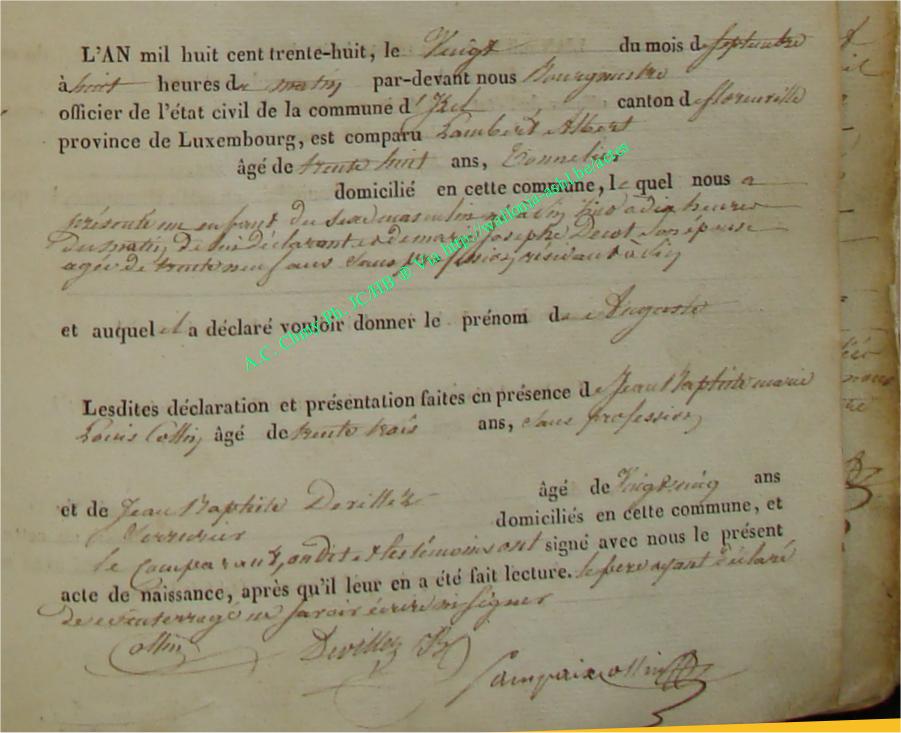 L'AN mil huit cent trente-huit, le Vingt du mois de Septembre
à huit heures de matin par-devant nous Bourgmestre
officier de l'état civil de la commune d' canton de florenville
province de Luxembourg, est comparu Lambert Albert
âgé de trente huit ans, Tonnelier
domicilié en cette commune, le quel nous a
présenté un enfant du sexe masculin né à dix heures
du matin, de lui déclarant et de marie Josephe Decot son épouse
agée de trente neuf ans Sans profession, résidant à
et auquel il a déclaré vouloir donner le prénom de Auguste
Lesdites déclaration et présentation faites en présence de Jean Baptiste marie
Louis Collin, âgé de trente trois ans, Sans profession
et de Jean Baptiste Devillez âgé de Vingt cinq ans
Serrurier domiciliés en cette commune, et
le Comparant, et les témoins ont signé avec nous le présent
acte de naissance, après qu'il leur en a été fait lecture. le pere ayant déclaré
de ce interrogé ne Savoir écrire ni Signer
Collin Devillez
Sampaix Collin
A.C. Chiny Ph. JC/HB ® Via http://wallonia-asbl.be/actes